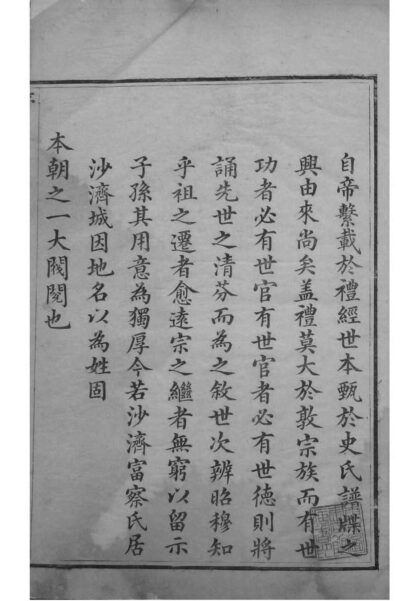 自帝繫載於禮經世本甄於史氏譜牒之
興由來尚矣盖禮莫大於敦宗族而有世
功者必有世官有世官者必有世德則將
誦先世之清芬而為之敘世次辨昭穆知
乎祖之遷者愈遠宗之繼者無窮以留示
子孫其用意為獨厚今若沙濟富察氏居
沙濟城因地名以為姓固
本朝之一大閥閱也